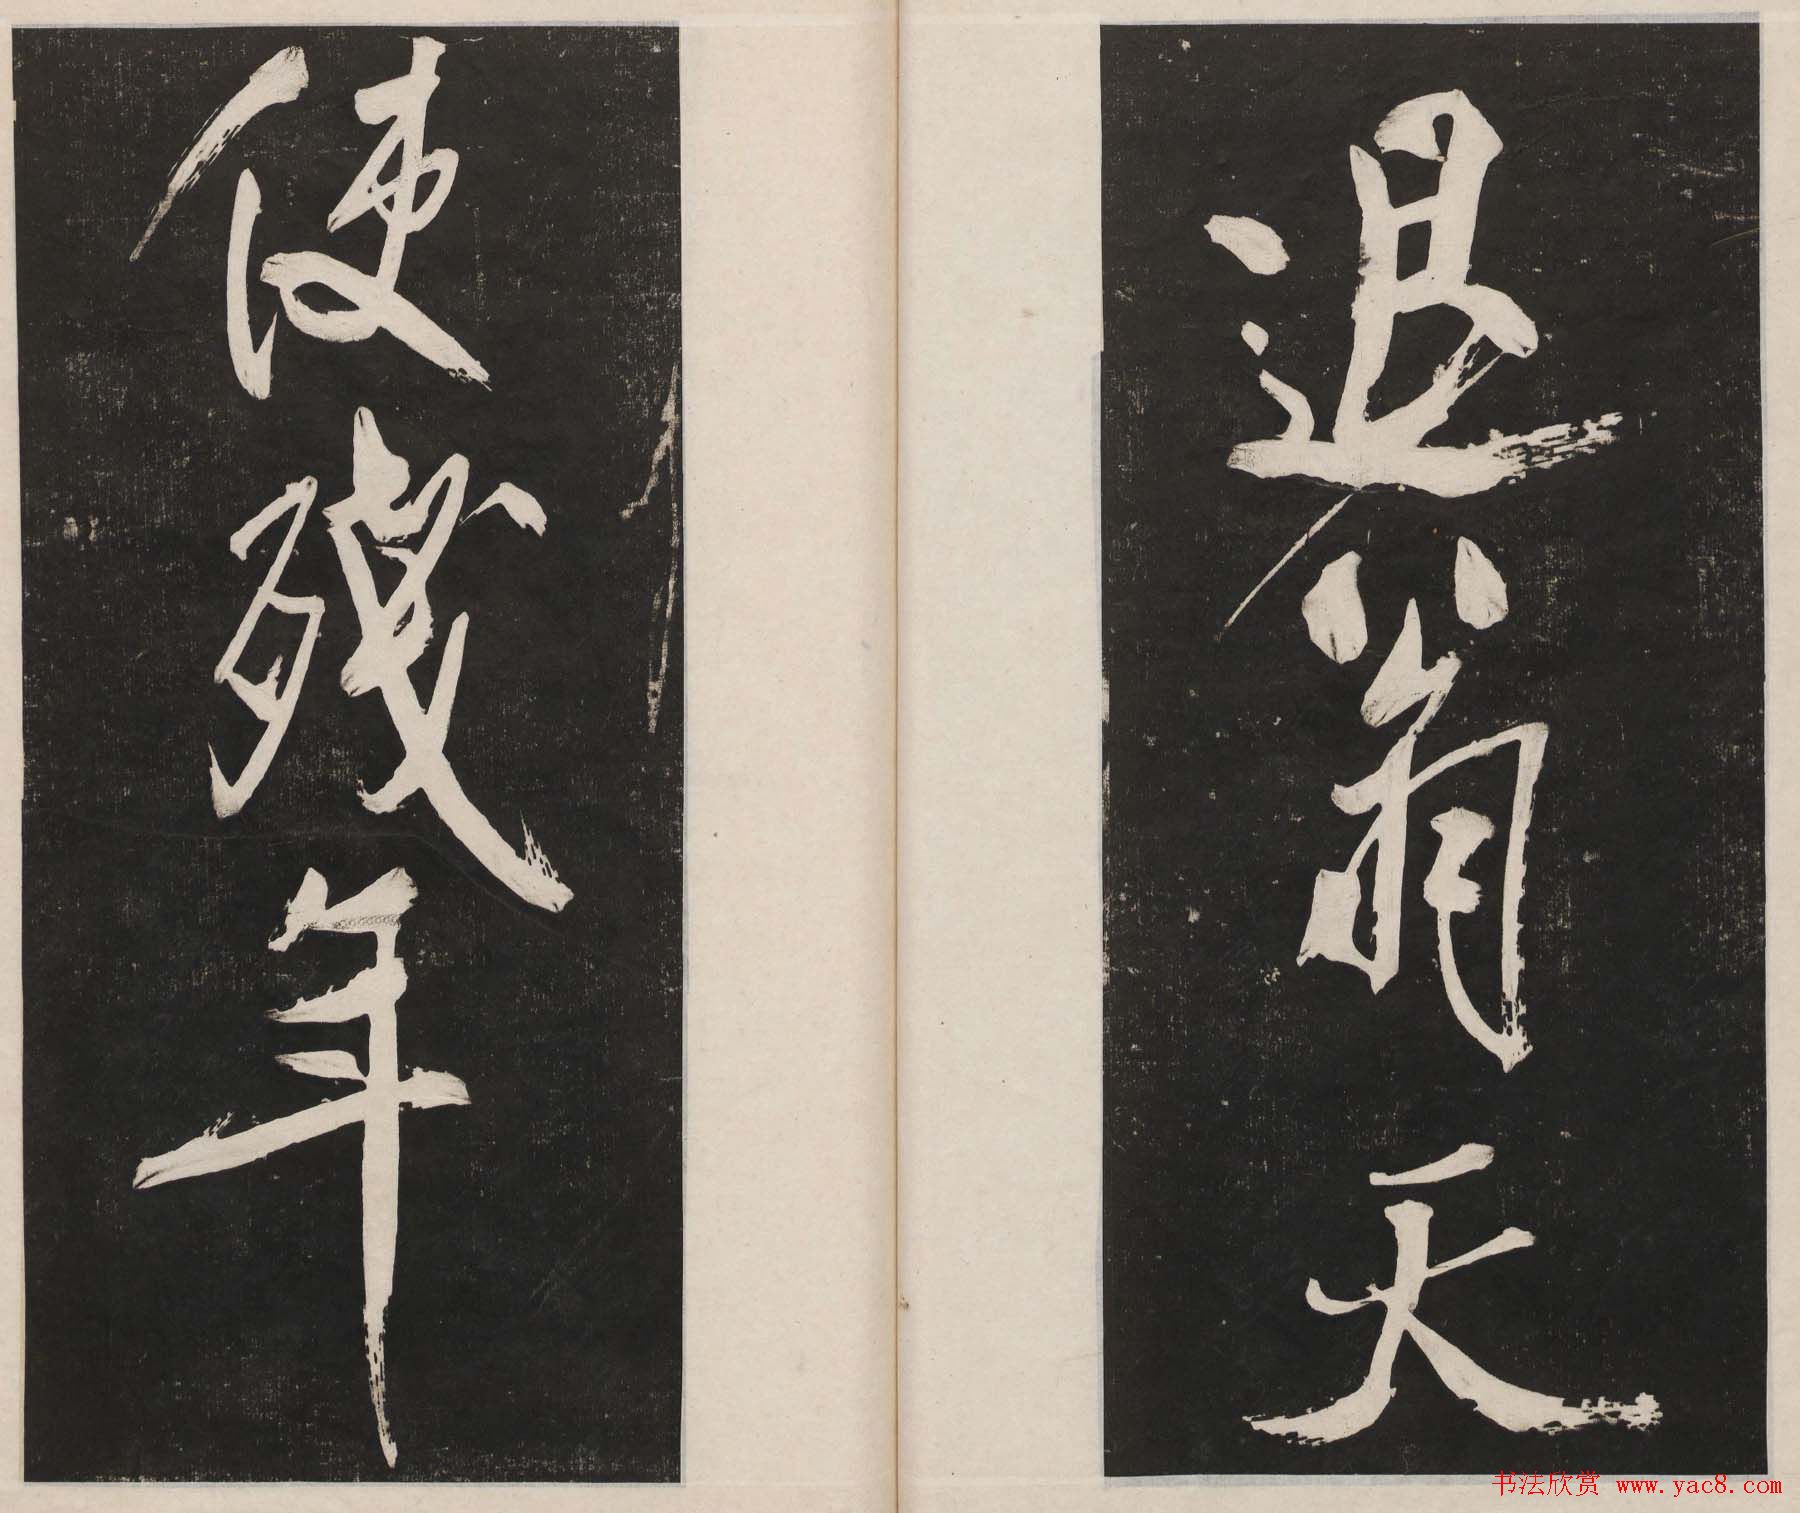 退翁天
使残年
书法欣赏 www.yac8.com